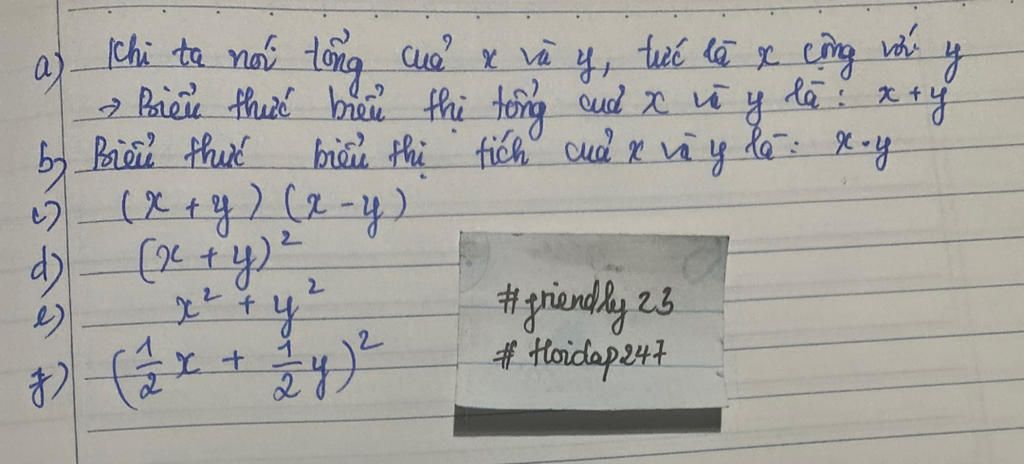 a) Khi ta nói tổng của x và y, tức là x cộng với y
→ Biểu thức biểu thị tổng của x và y là: x + y
b) Biểu thức biểu thị tích của x và y là: x . y
c) (x + y) (x - y)
d) (x + y)²
e) x² + y²
f) (1/2 x + 1/2 y)²
#friendly23
# Hoidap247